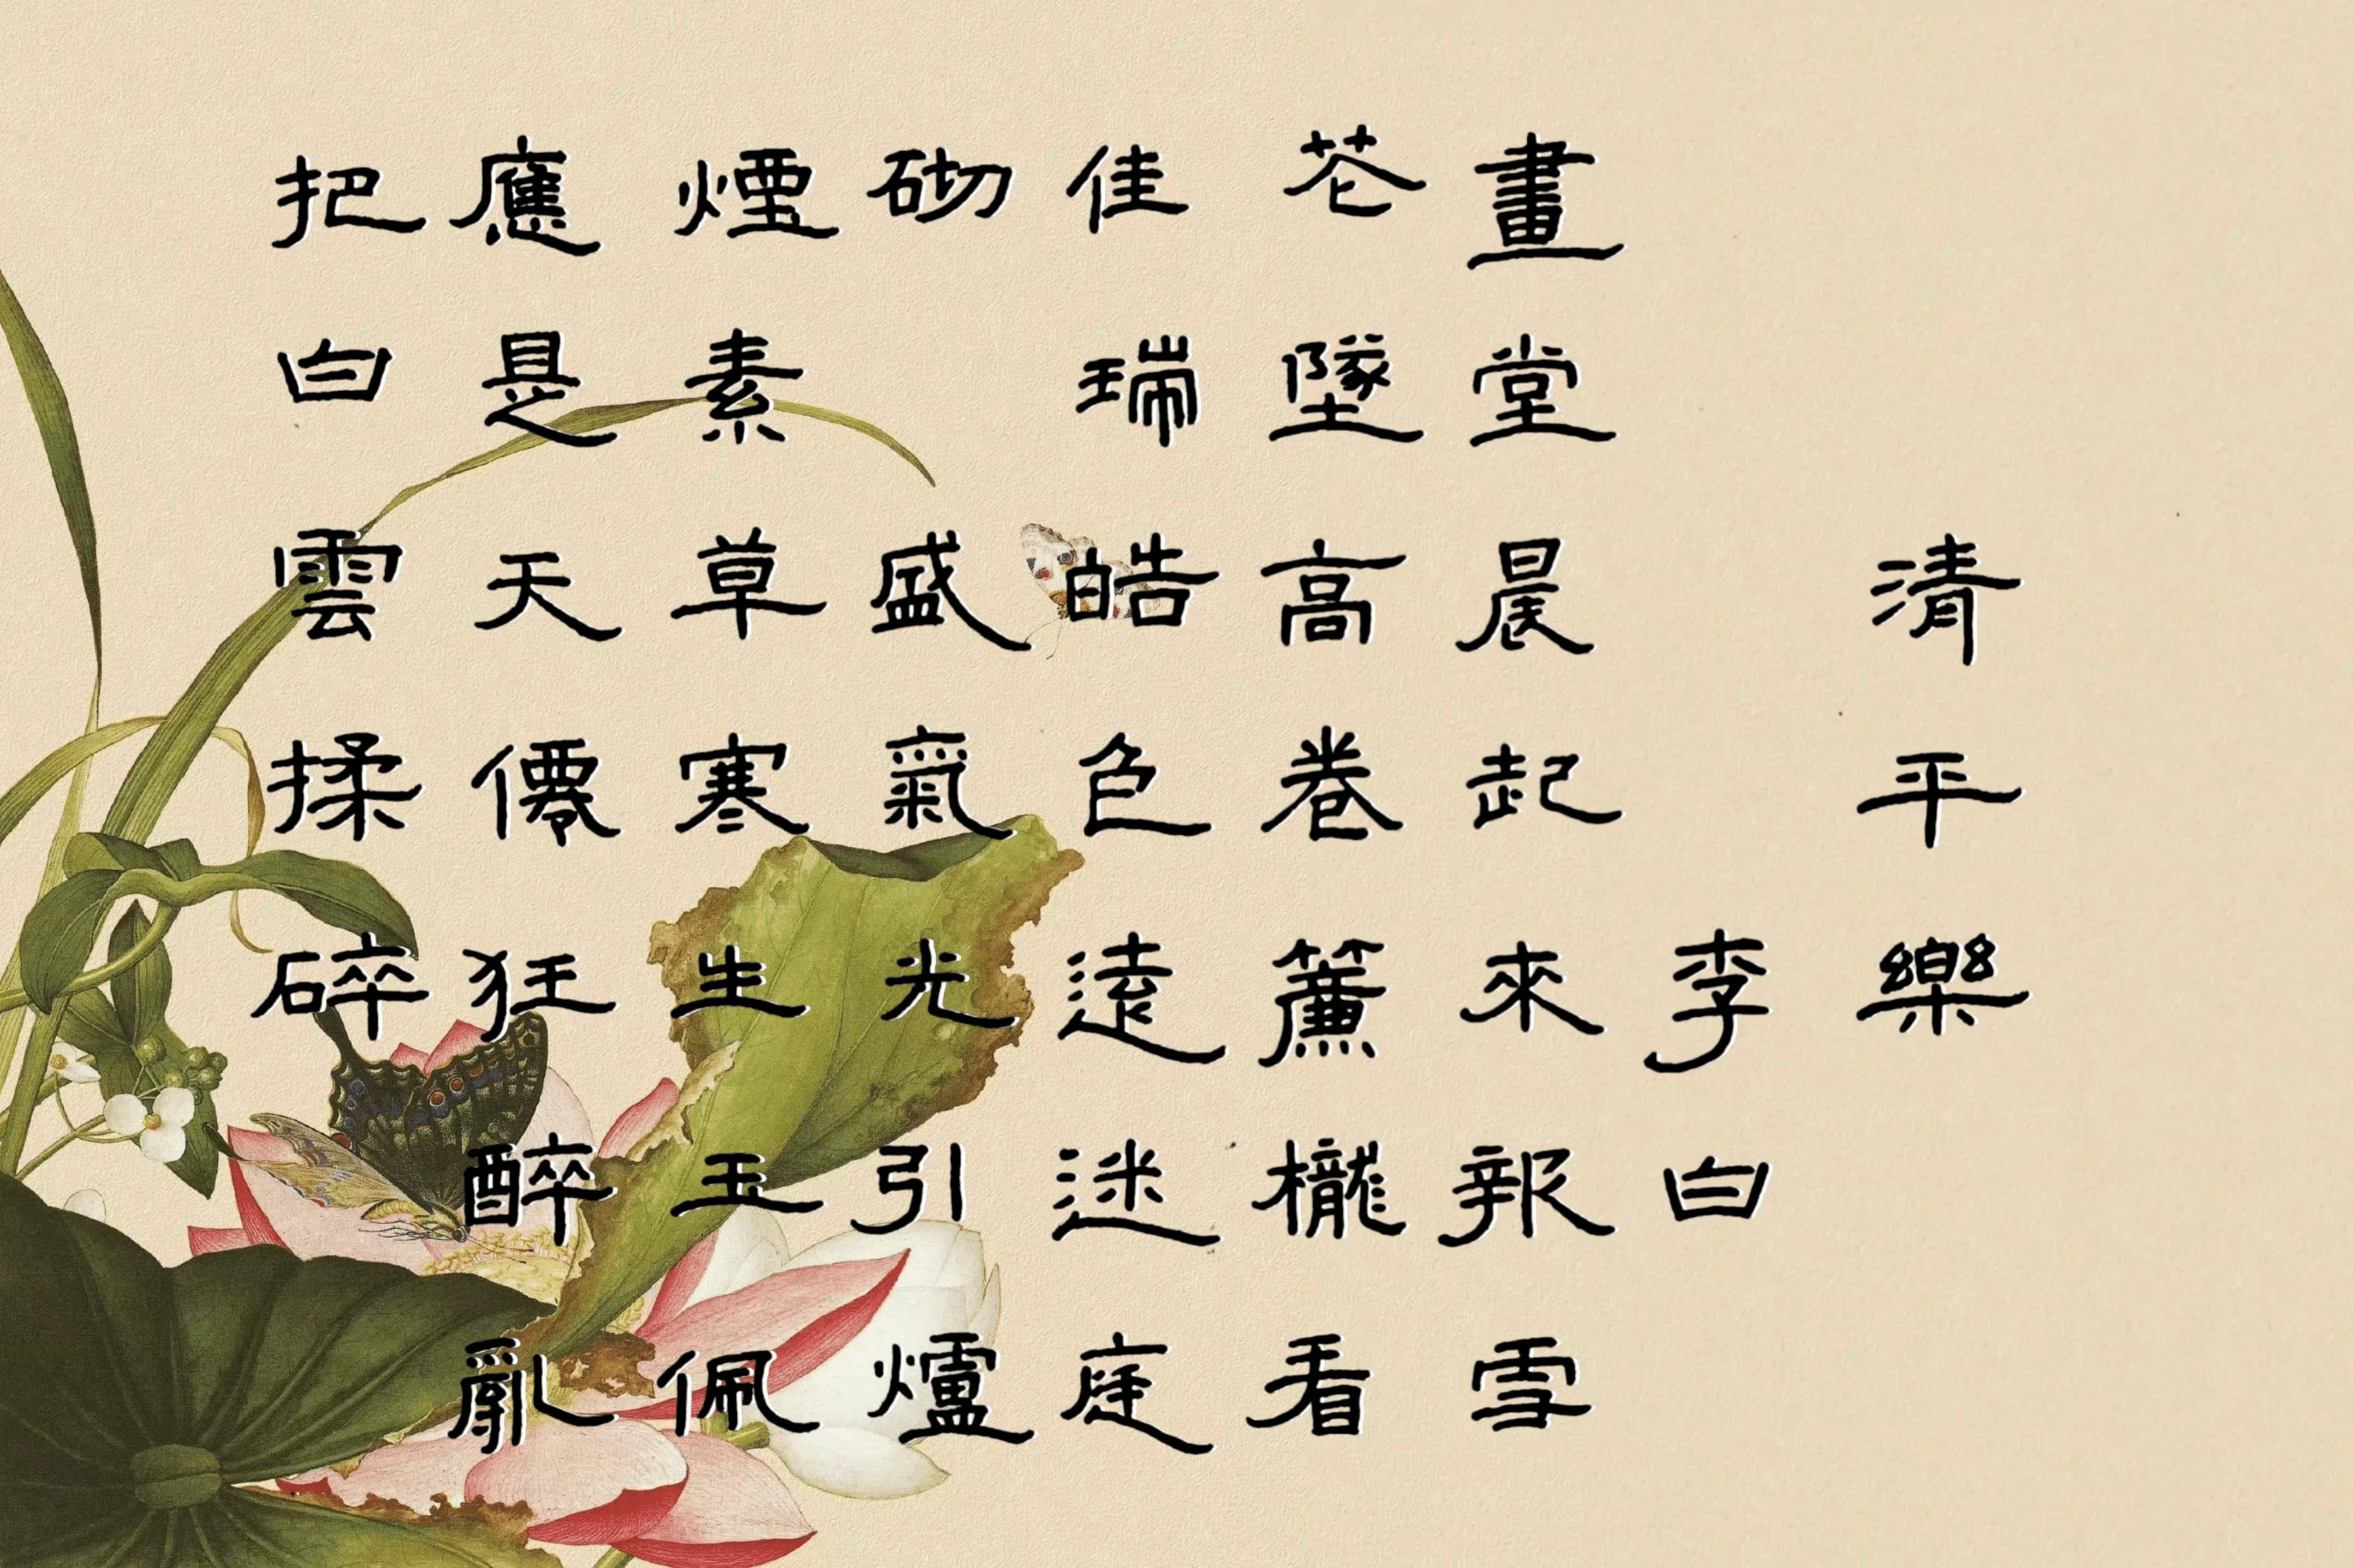 清平樂
李白
畫堂晨起來報雪
花墜高卷簾櫳看
佳瑞皓色遠迷庭
砌盛氣光引爐
煙素草寒生玉佩
應是天僊狂醉亂
把白雲揉碎